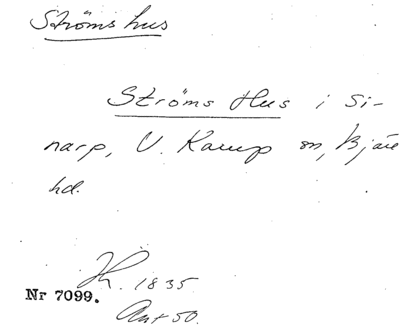 Ströms hus
Ströms Hus i Si-
narp, V. Karup sn, Bjäre
hd.
H. 1835
Nr 7099.
Ant 50.